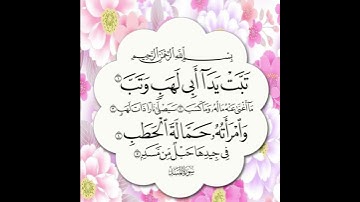 بِسْمِ اللَّهِ الرَّحْمَٰنِ الرَّحِيمِ
تَبَّتْ يَدَآ أَبِي لَهَبٍ وَتَبَّ ١
مَآ أَغْنَىٰ عَنْهُ مَالُهُ وَمَا كَسَبَ ٢ سَيَصْلَىٰ نَارًا ذَاتَ لَهَبٍ ٣
وَٱمْرَأَتُهُ حَمَّالَةَ ٱلْحَطَبِ ٤
فِي جِيدِهَا حَبْلٌ مِّن مَّسَدٍ ٥
سورة المسد